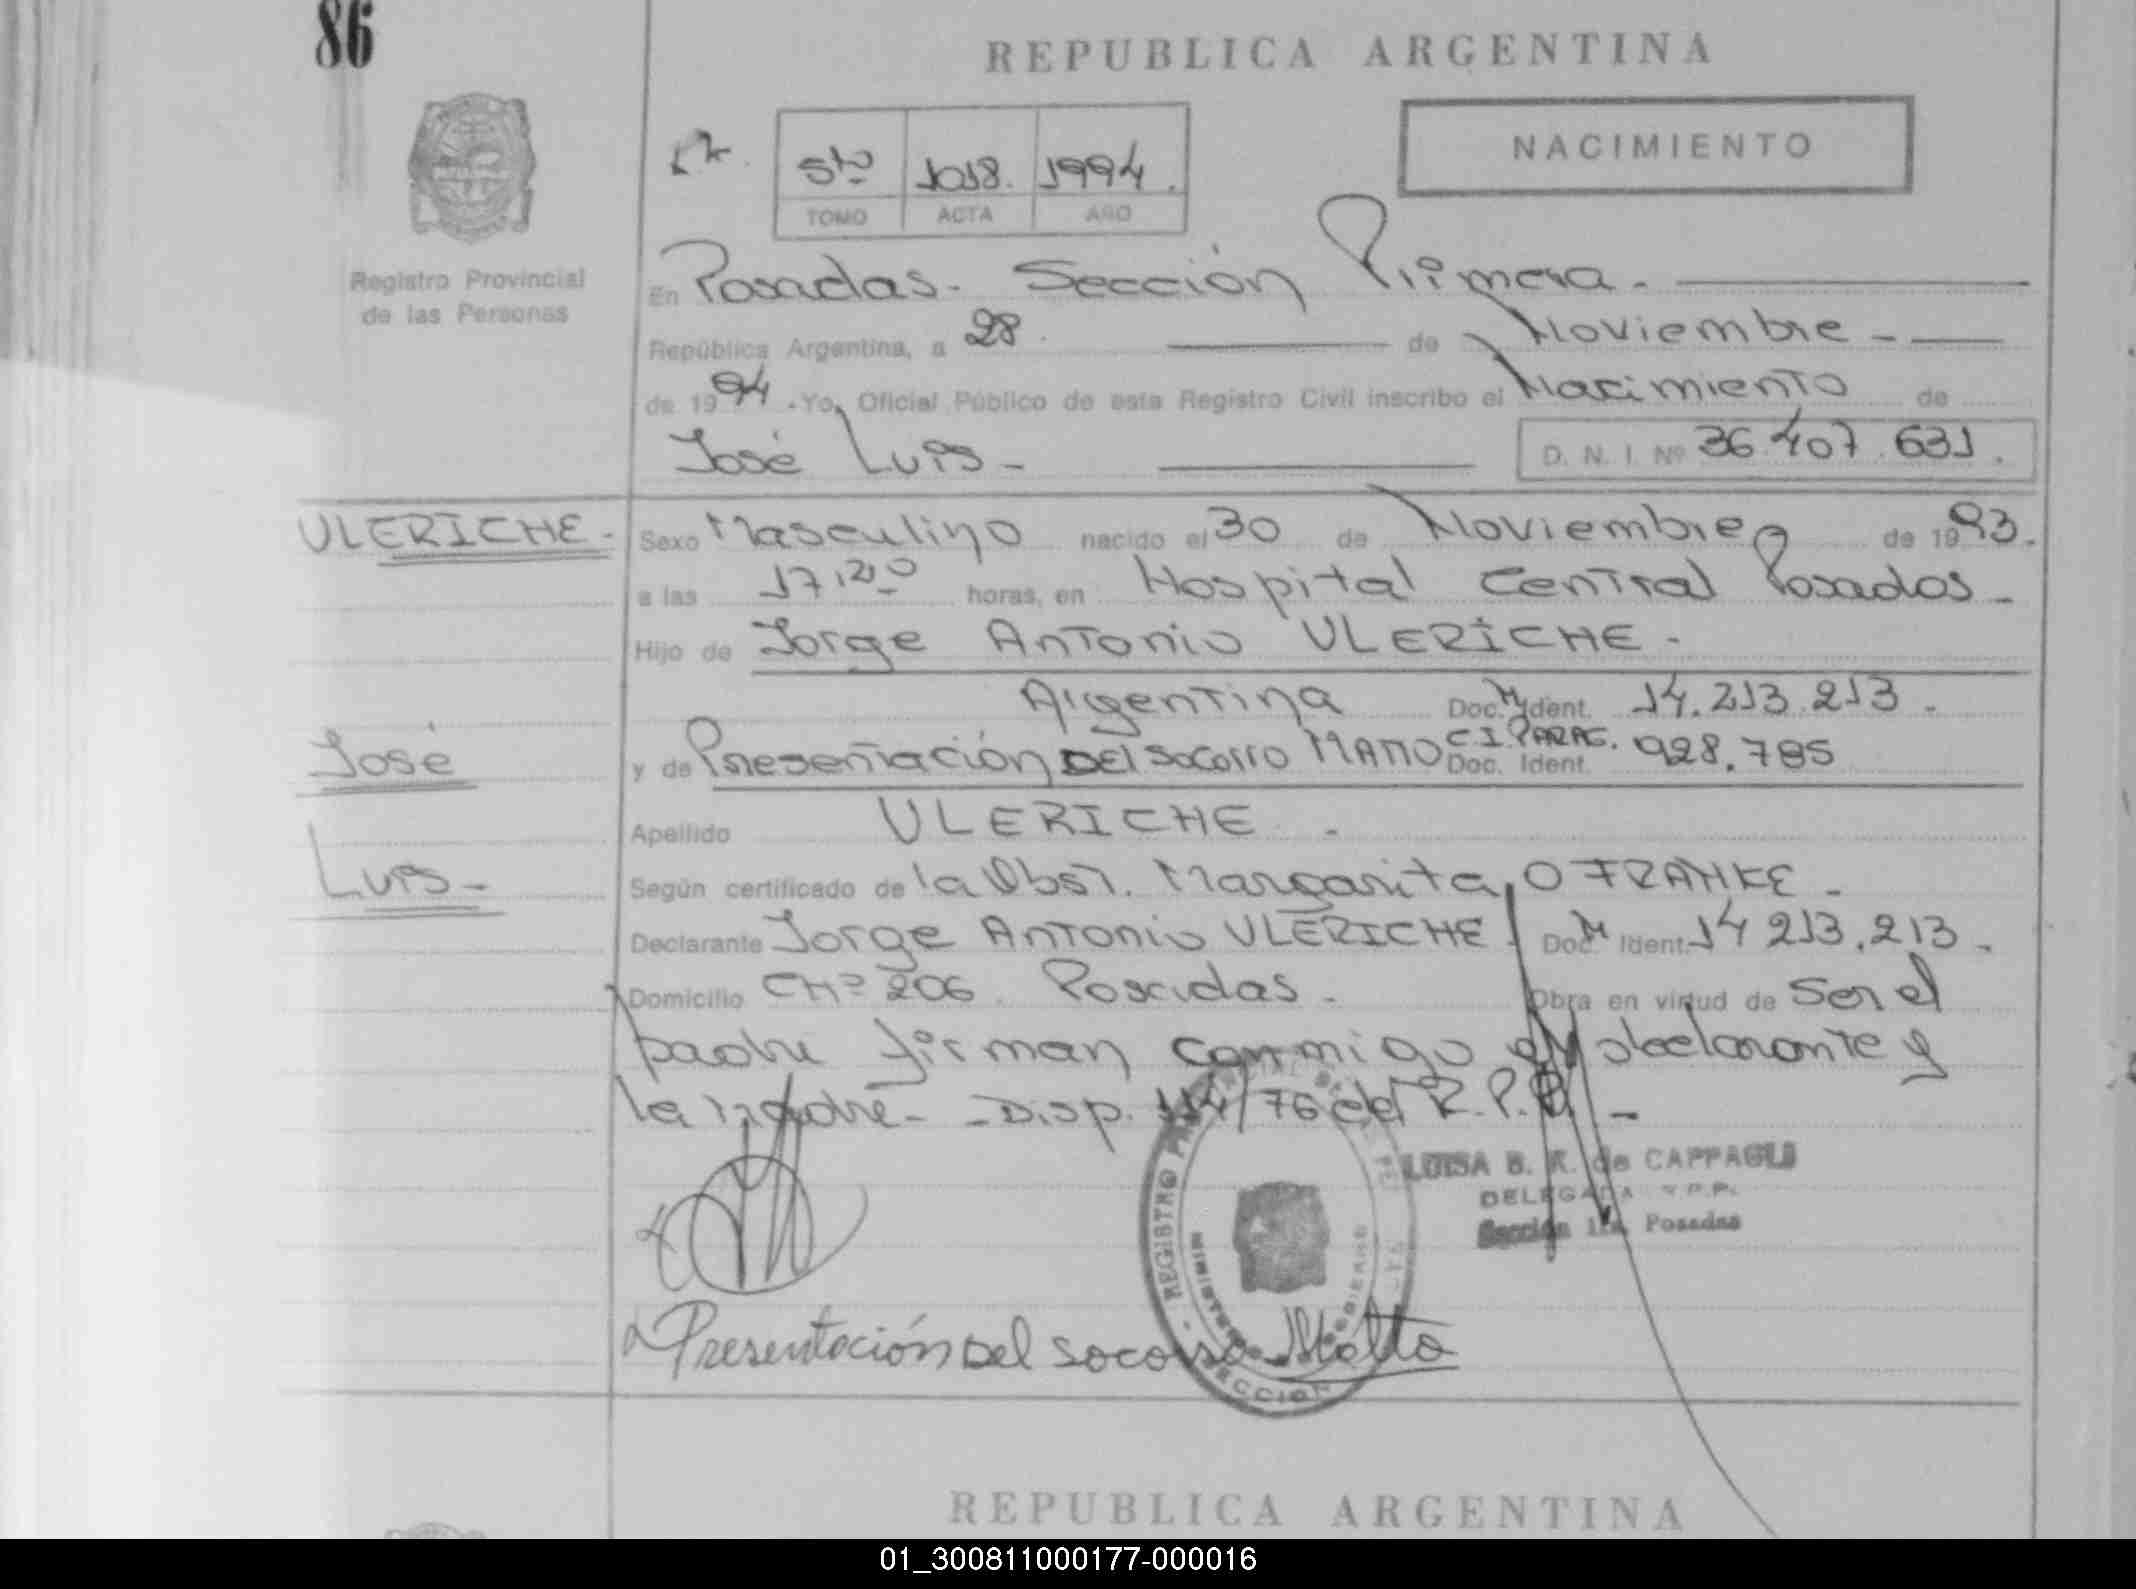 86
REPUBLICA ARGENTINA
NACIMIENTO
5to 1018. 1994.
TOMO ACTA AÑO
Registro Provincial
de las Personas
En Posadas. Sección Primera.
República Argentina, a 28. de Noviembre
de 1994. Yo, Oficial Público de este Registro Civil inscribo el Nacimiento de
José Luis - D. N. I. Nº 36.407.631.
ULERICHE. Sexo Masculino nacido el 30 de Noviembre de 1993.
a las 17,20 horas, en Hospital Central Posadas -
Hijo de Jorge Antonio ULERICHE.
Argentina Doc. M Ident. 14.213.213.
C.I. PARAG.
José y de Presentación DEl Socorro MATTO Doc. Ident. 928.785
Apellido ULERICHE.
Luis - Según certificado de la Obst. Margarita O FRANKE -
Declarante Jorge Antonio ULERICHE. Doc. M Ident. 14 213.213.
Domicilio CHª 206. Posadas. Obra en virtud de Ser el
padre firman conmigo el declarante y
la madre. - Disp. 114/76 del R.P.P. -
LUISA B. K. de CAPPAGLI
DELEGADA R.P.P.
Sección 1ra. Posadas
REGISTRO PROVINCIAL DE LAS PE
MINISTERIO DE GOBIERNO
SECCION
Presentación Del Socorro Matto
REPUBLICA ARGENTINA
01_300811000177-000016